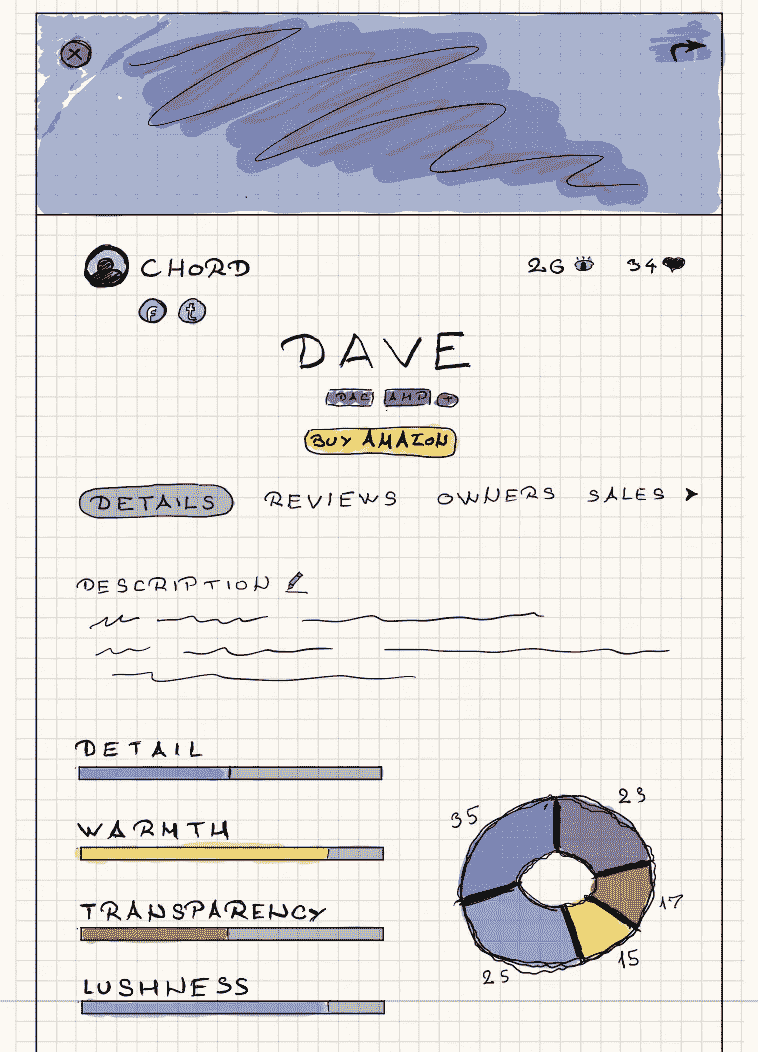 CHORD 26 34
f t
DAVE
DAC AMP +
BUY AMAZON
DETAILS REVIEWS OWNERS SALES
DESCRIPTION
DETAIL
WARMTH
TRANSPARENCY
LUSHNESS
35 23
17
15
25